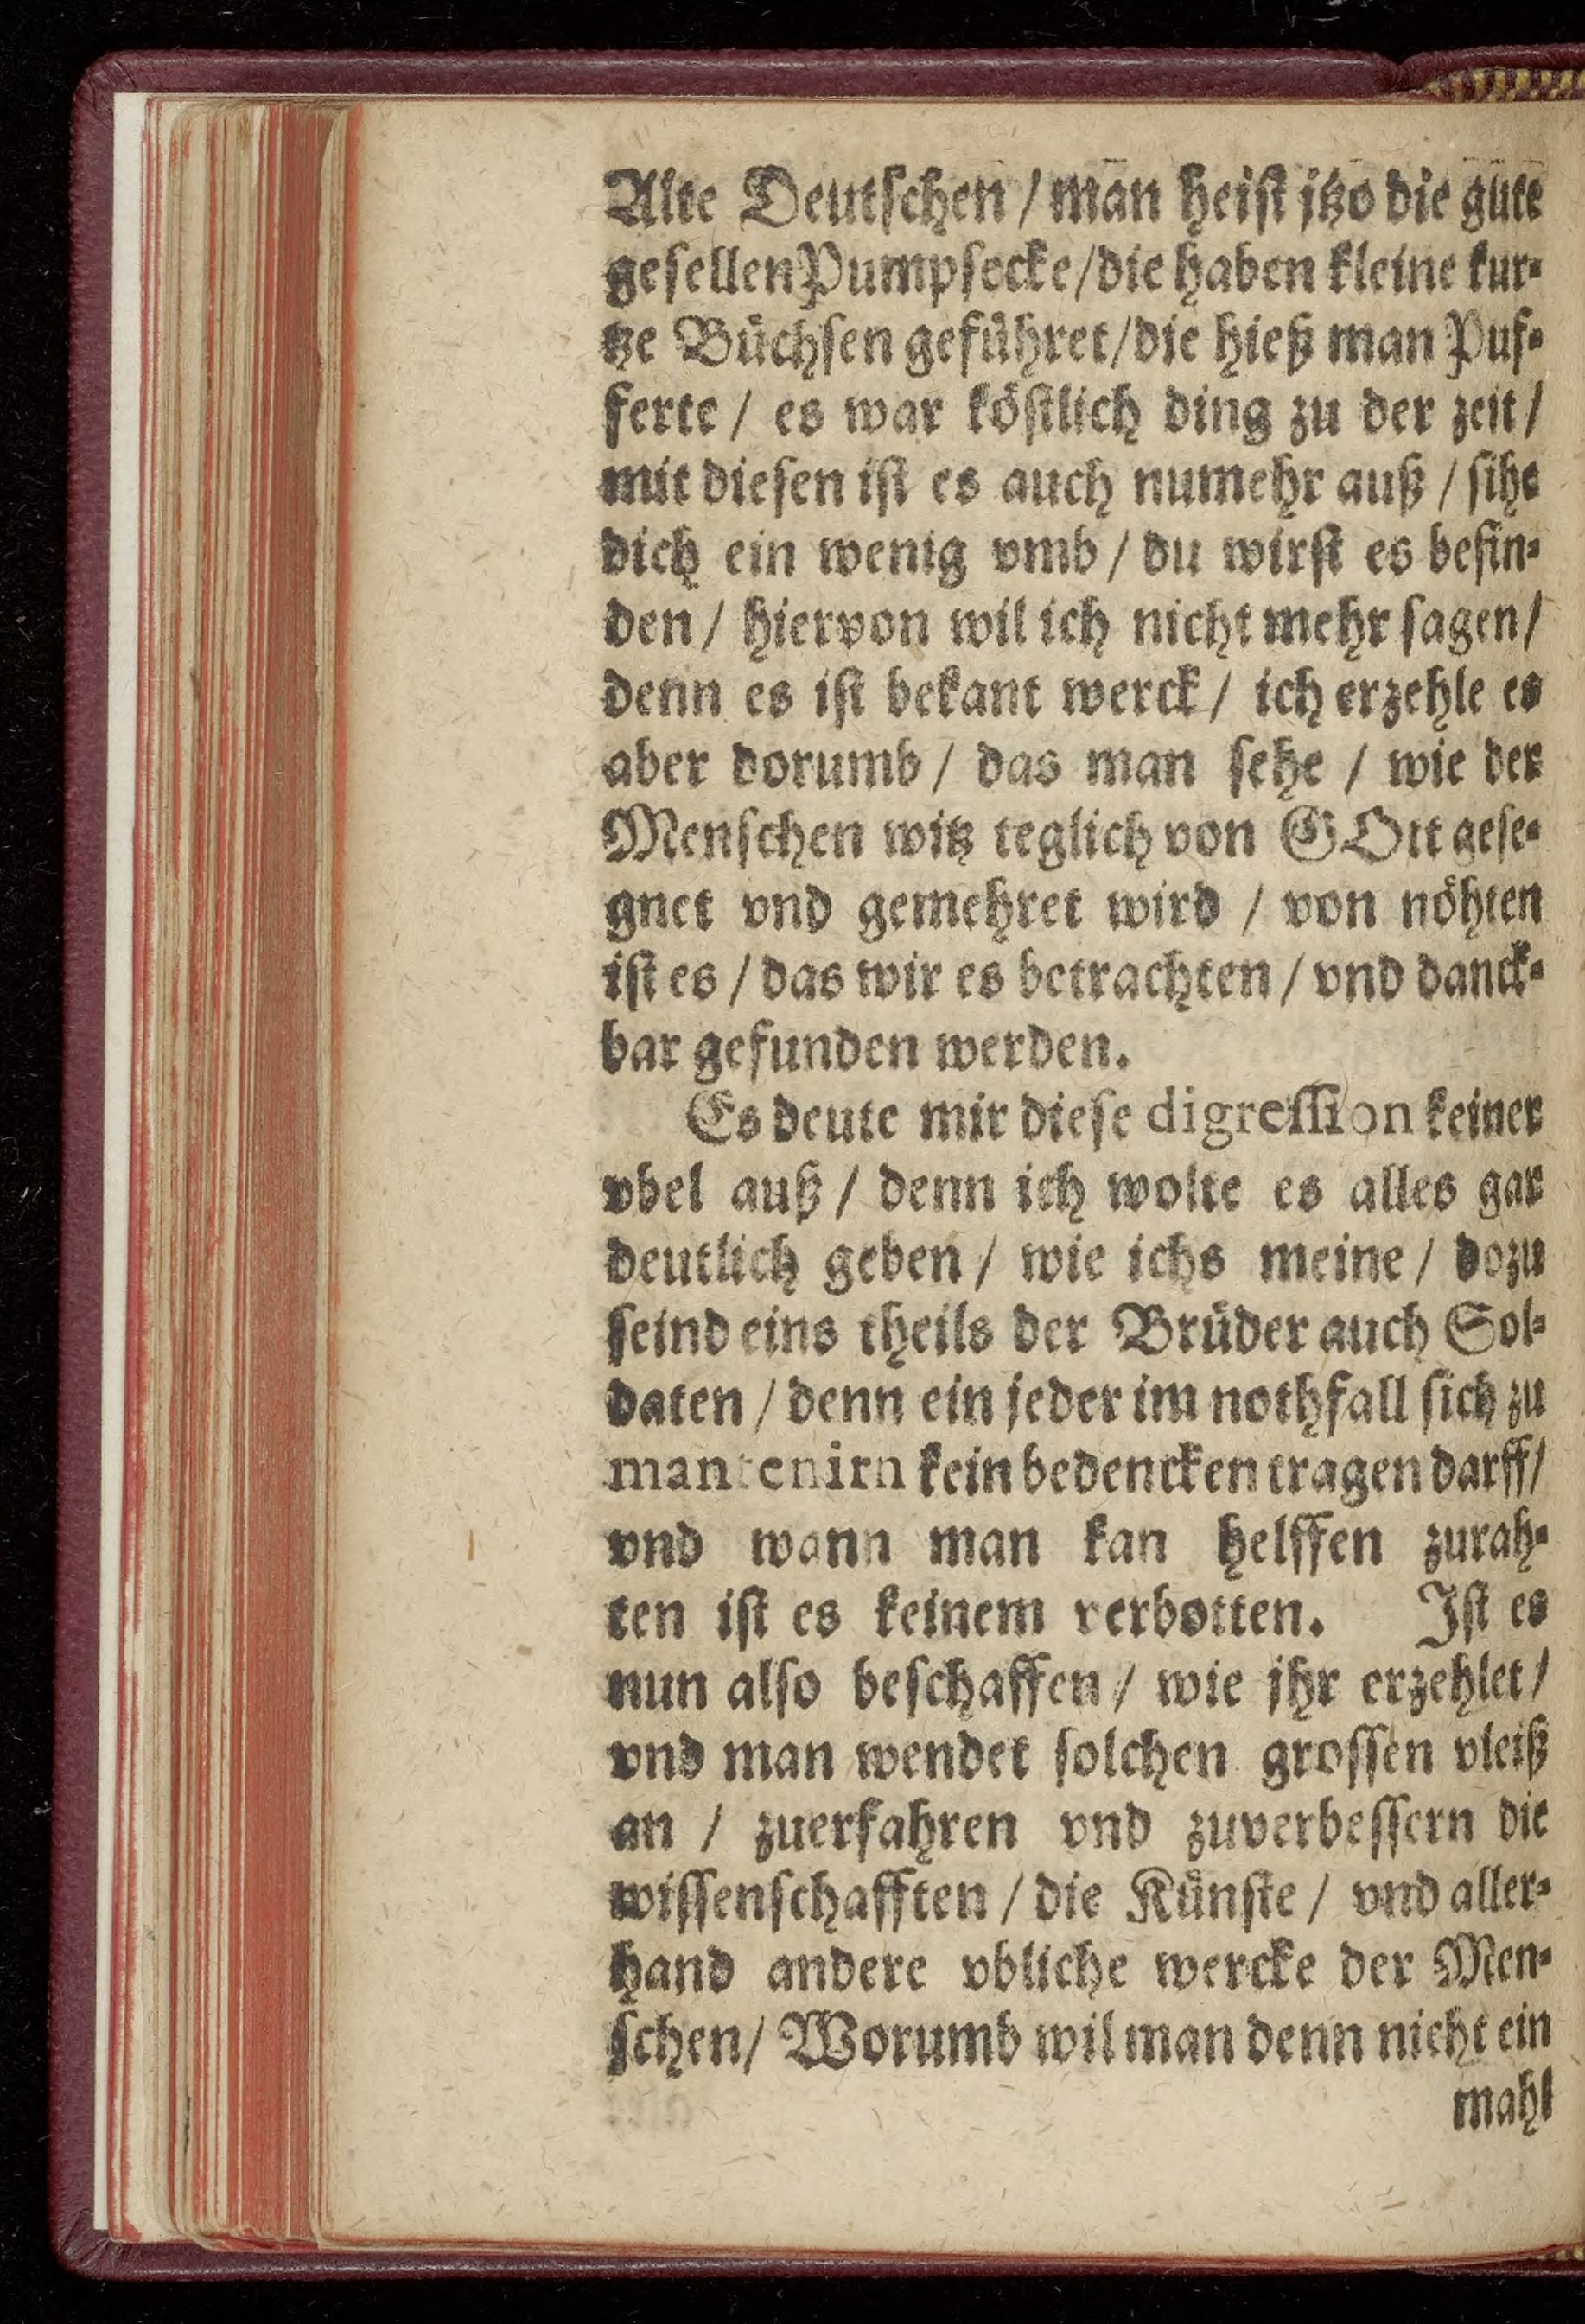 Alte Deutſchen / man heiſt jtzo die gute
geſellen Pumpſecke / die haben kleine kur⸗
tze Buͤchſen gefuͤhret / die hieß man Puf⸗
ferte / es war koͤſtlich ding zu der zeit /
mit dieſen iſt es auch numehr auß / ſihe
dich ein wenig vmb / du wirſt es befin⸗
den / hiervon wil ich nicht mehr ſagen /
denn es iſt bekant werck / ich erzehle es
aber dorumb / das man ſehe / wie der
Menſchen witz teglich von GOtt geſe⸗
gnet vnd gemehret wird / von noͤhten
iſt es / das wir es betrachten / vnd danck⸗
bar gefunden werden.
Es deute mir dieſe digreſſion keiner
vbel auß / denn ich wolte es alles gar
deutlich geben / wie ichs meine / dozu
ſeind eins theils der Bruͤder auch Sol⸗
daten / denn ein jeder im nothfall ſich zu
mantenirn kein bedencken tragen darff /
vnd wann man kan helffen zurah⸗
ten iſt es keinem verbotten. Iſt es
nun alſo beſchaffen / wie jhr erzehlet /
vnd man wendet ſolchen groſſen vleiß
an / zuerfahren vnd zuverbeſſern die
wiſſenſchafften / die Kuͤnſte / vnd aller⸗
hand andere vbliche wercke der Men⸗
ſchen / Worumb wil man denn nicht ein
mahl